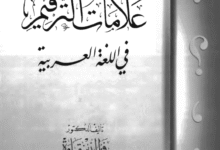 علامات الترقيم
في اللغة العربية
تأليف الدكتور